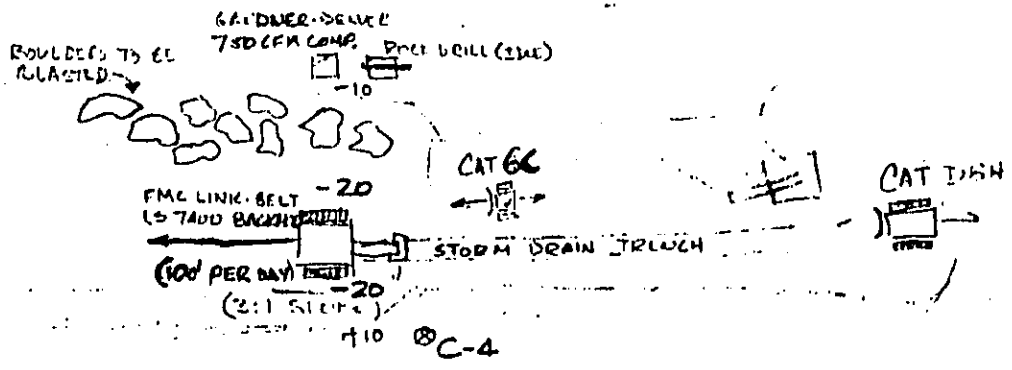 GARDNER-DENVER
750 CFM COMP.
ROCK DRILL (IDLE)
BOULDERS TO BE
BLASTED
-10
CAT 6C
-20
CAT
FMC LINK-BELT
LS 7400 BACKHOE
STORM DRAIN TRENCH
(100' PER DAY)
-20
(2:1 SLOPE)
+10
C-4